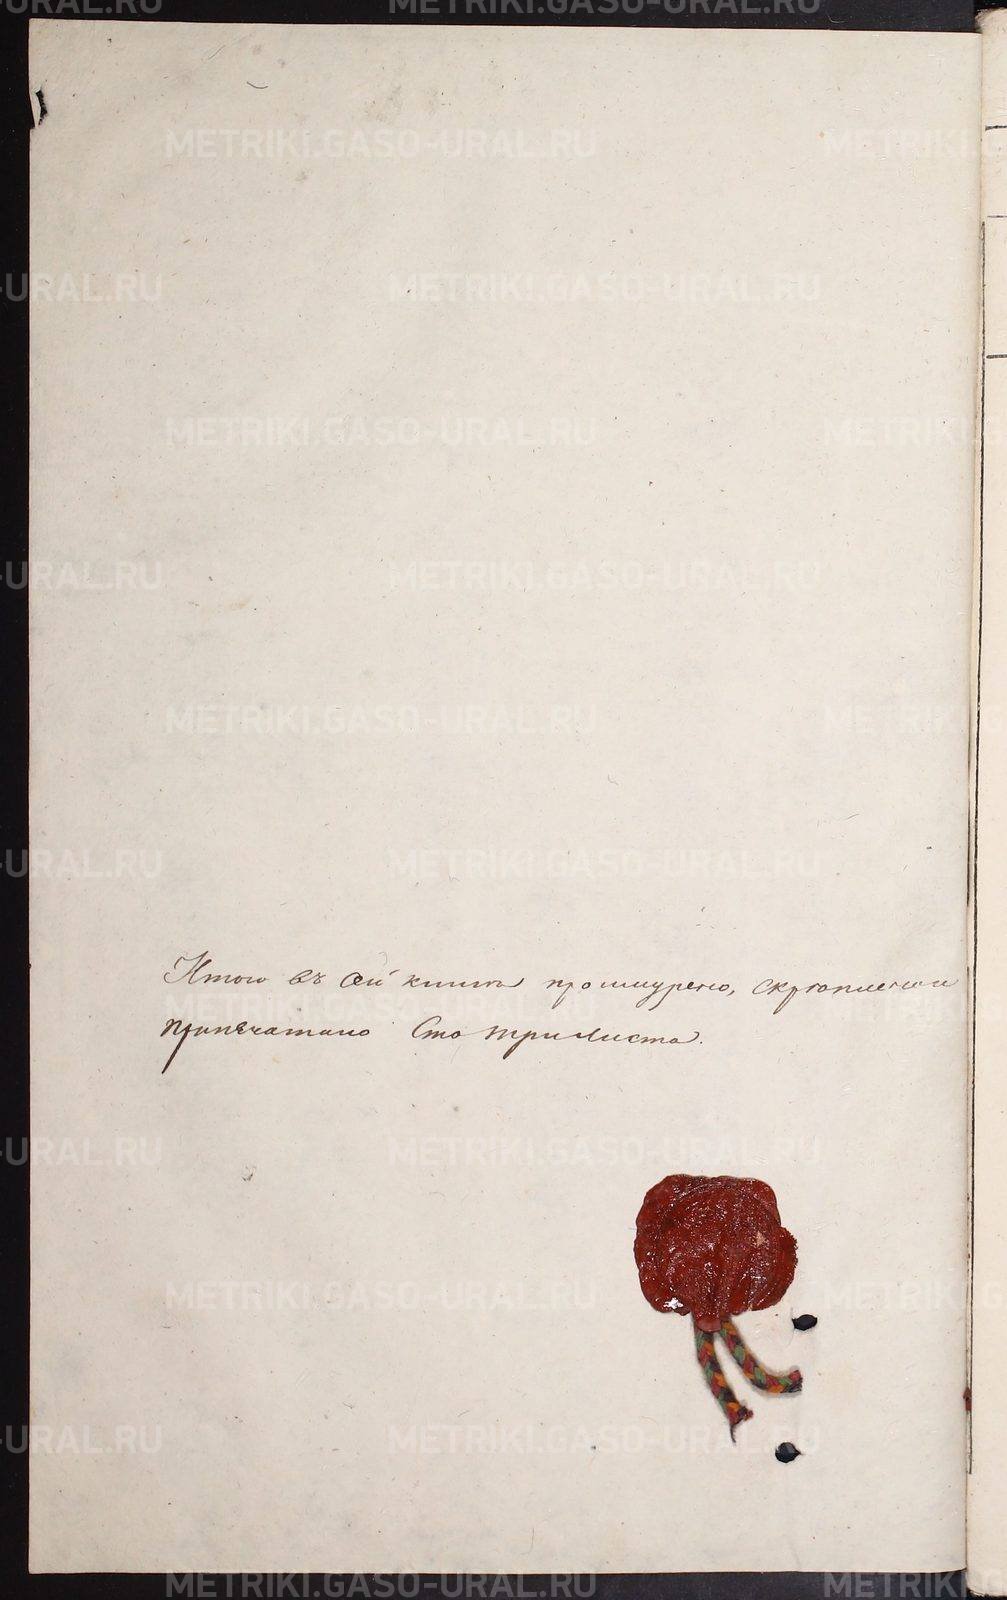 METRIKI.GASO-URAL.RU
Итого въ сей книгѣ прошнурено, скрѣплено и
припечатано Сто три листа.